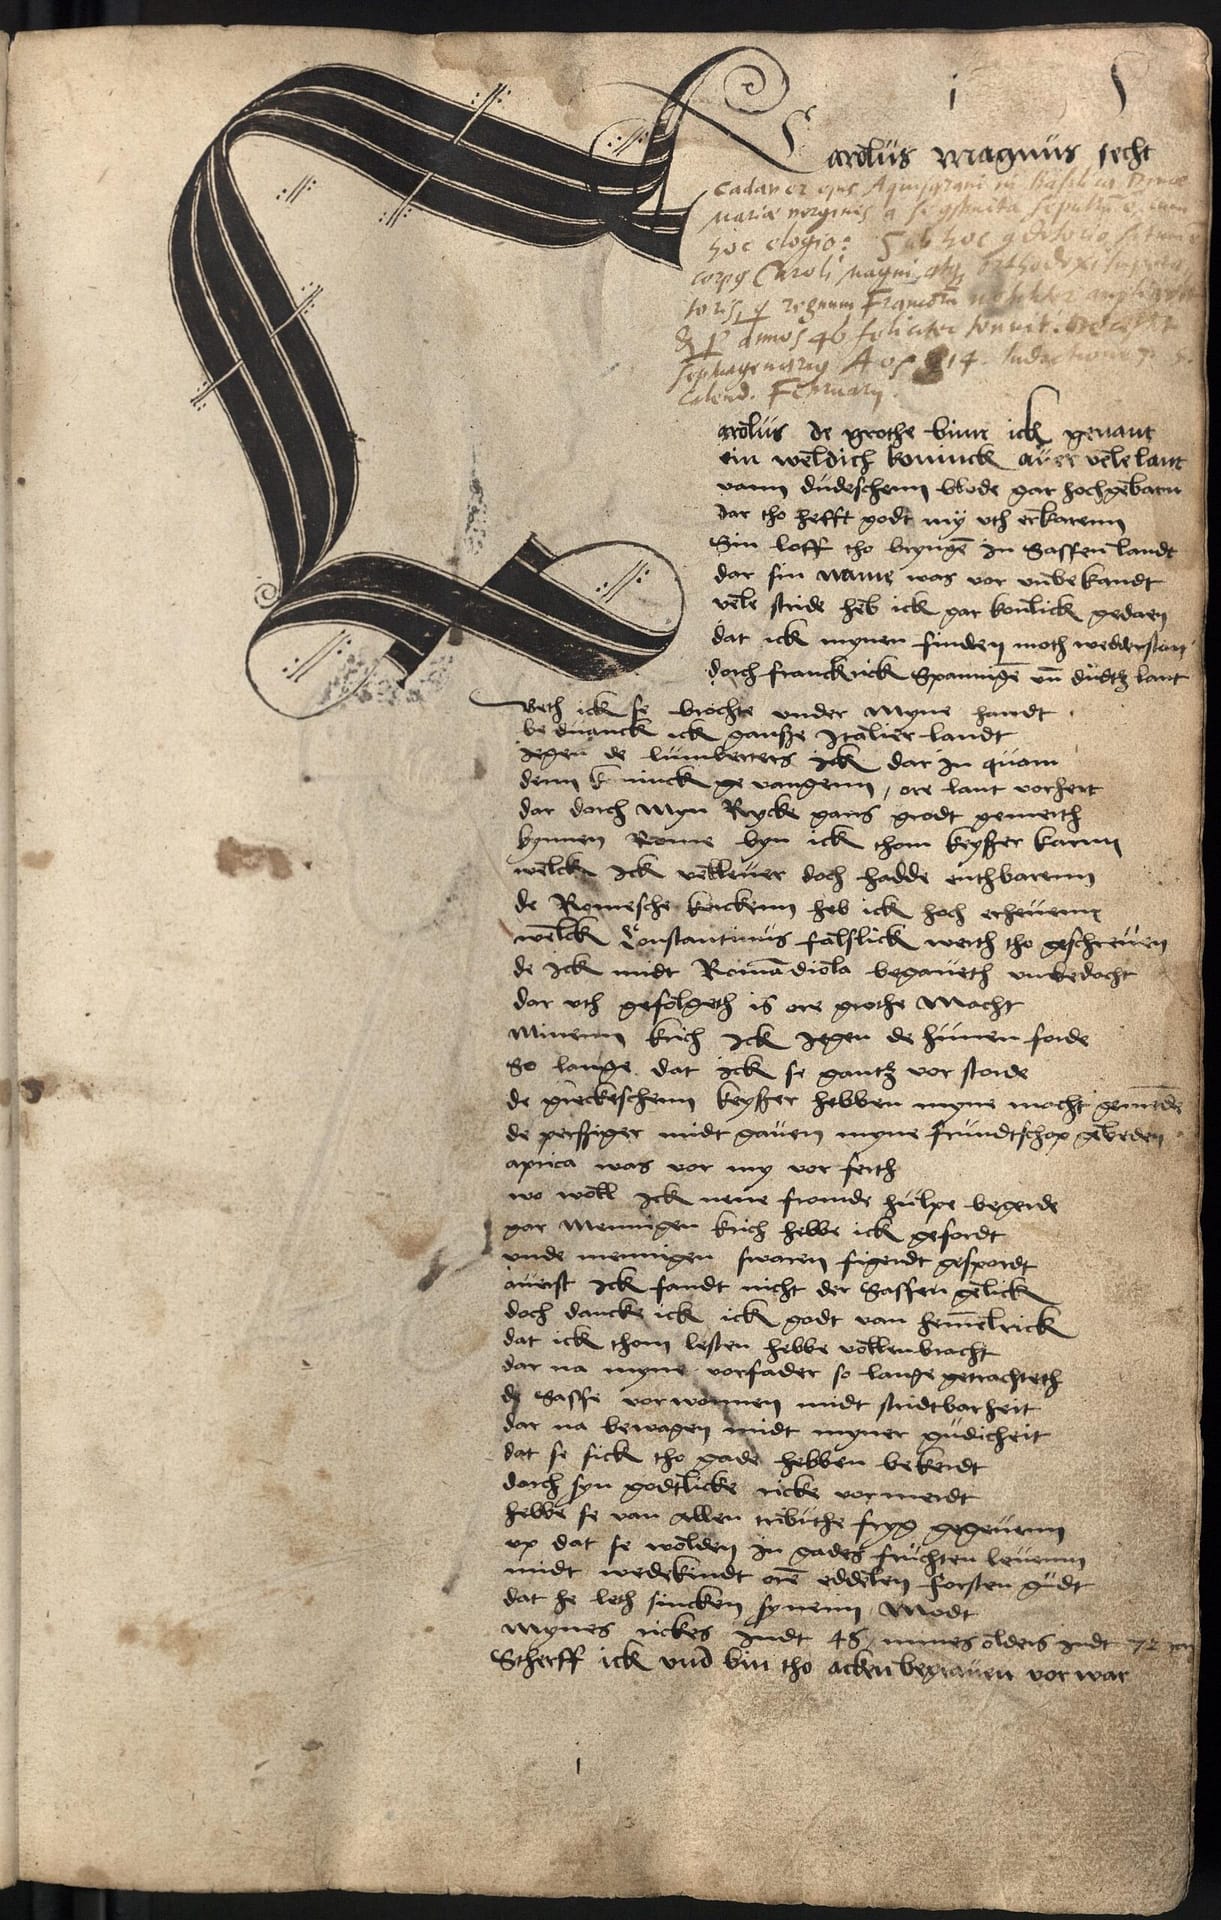 i
Carolus magnus secht
Cadaver eius Aquisgrani in Basilica Divae
Mariae virginis a se constructa sepultum cum
hoc elogio: Sub hoc conditorio situm
corpus Caroli magni atque orthodoxi impera
toris, qui regnum Francorum nobiliter ampliavit
& per annos 46 foeliciter tenuit. Decessit
septuagenarius Ao 814. Indictione 7. 5.
Calend. Februarij.
arolus de grothe binn ick genant
ein weldich koninck auer vele lant
vann dudeschenn blode gar hochgebarn
dar tho hefft godt my vth erkarenn
Sin loff tho bryngē in Sassenlandt
dar sin name was vor vnbekandt
vele stride heb ick gar konlick gedaen
dat ick mynen finden moth wedderstan
dorch franckrick Spannigē vn̄ dudtz lant
Beth ick se brochte vnder myne handt
beduanck ick gansze Italier landt
Iegen de lumberters ick dar in quam
denn koninck gevangenn, ore lant vorhert
dar dorch myn Rycke gans grodt gemerth
bynnen Rome byn ick thom keyszer karnn
welck ick velleuer doch hadde enthbarenn
de Romesche kerckenn heb ick hoch erheuenn
welck Constantinus falslick werth tho geschreuen
de ick midt Romādiola begaueth vnbedacht
dar vth gefolgeth is ore grothe macht
Minenn krich ick Iegen de hunen forde
So lange dat ick se gantz vor storde
de greckeschenn keyszer hebben myne macht
de perssiger midt gauen myne frundtschop gebeden
aprica was vor my vor ferth
wo woll ick nene fromde hulpe begerde
gar mennigen krich hebbe ick gefordt
vnde mennigen swaren figendt gespordt
auerst ick fandt nicht der Sassen gelick
doch dancke ick ick godt van hem̄elrick
dat ick thom lesten hebbe vollenbracht
dar na myne vorfader so lange getrachteth
de Sasse vorwonnen midt stridtbarheit
dar na bewagen midt myner gudicheit
dat se sick tho gade hebben bekerdt
dorch syn godtlicke ricke vormerdt
hebbe se van allen tributhe fryg gegeuenn
vp dat se wolden in gades fruchten leuenn
midt wedekindt orē eddelen forsten gudt
dat he leth sincken synenn modt
mynes rickes Indt 46, mines olders Indt 72
Stherff ick vnd bin tho acken begrauen vor war